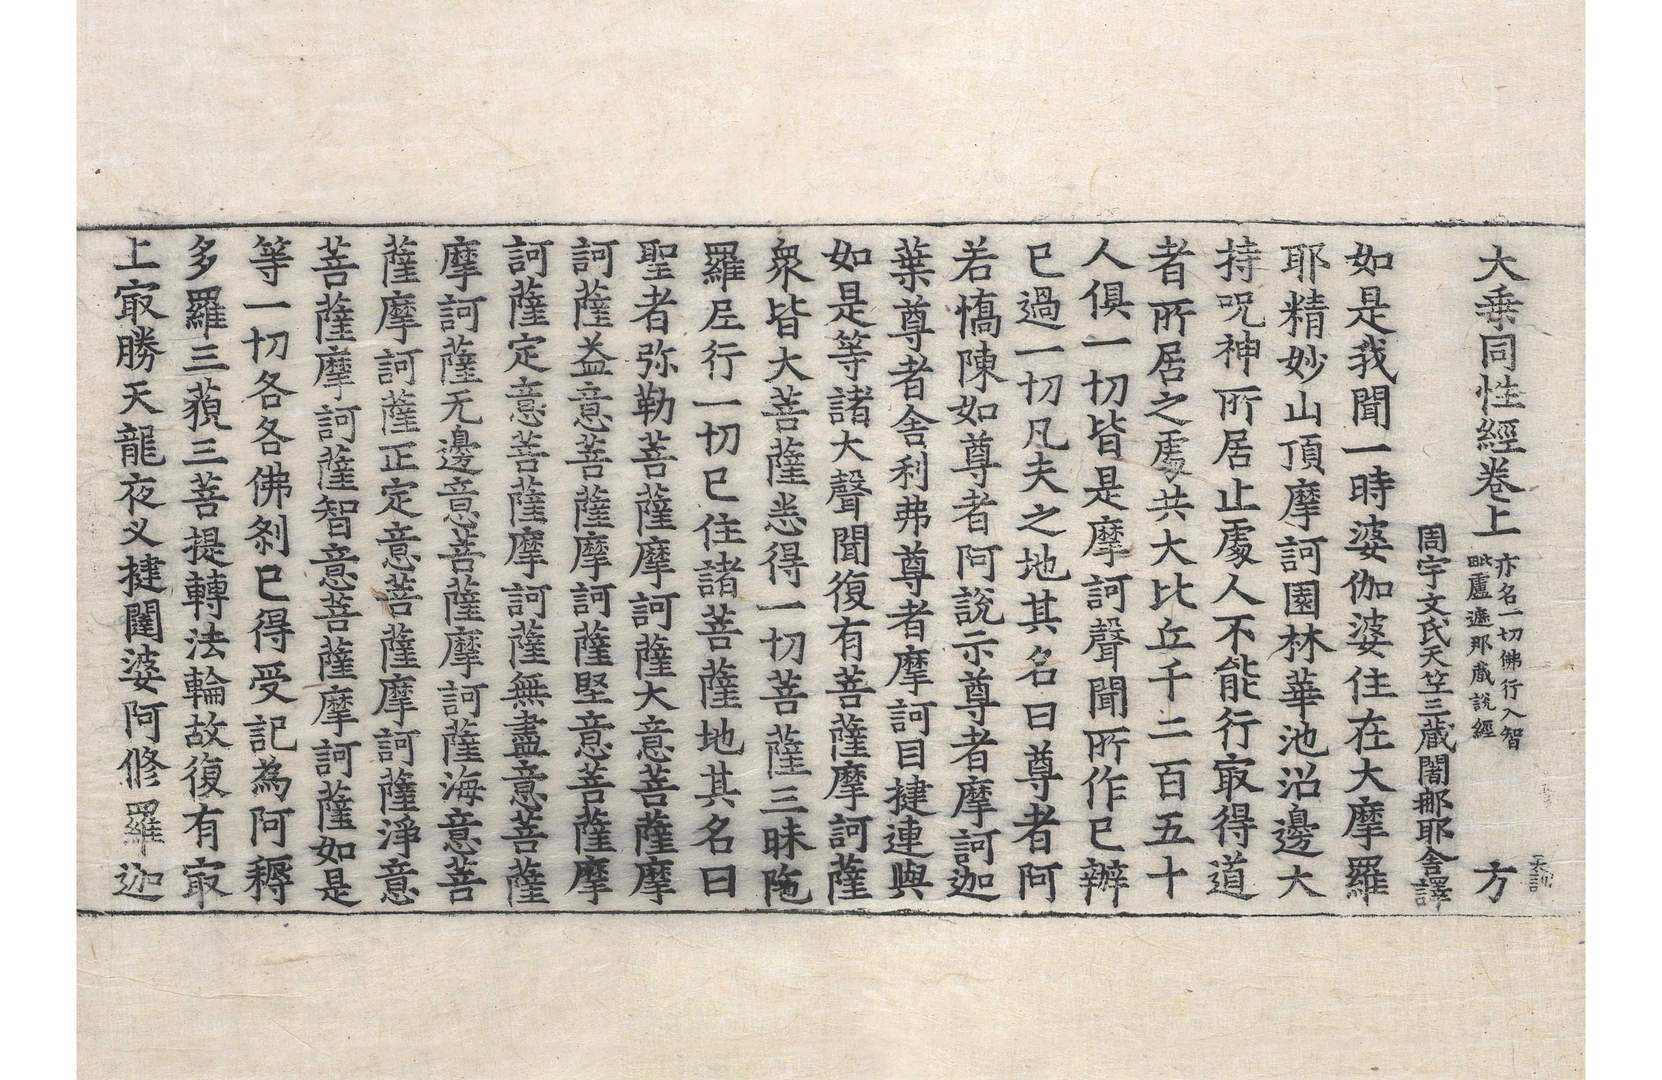 大乗同性經卷上 亦名一切佛行入智 毗盧遮那藏說經 方
周宇文氏天竺三藏闍那耶舍譯
如是我聞一時婆伽婆住在大摩羅
耶精妙山頂摩訶園林華池沼邊大
持呪神所居止處人不能行㝡得道
者所居之處共大比丘千二百五十
人俱一切皆是摩訶聲聞所作已辦
已過一切凡夫之地其名曰尊者阿
若憍陳如尊者阿說示尊者摩訶迦
葉尊者舍利弗尊者摩訶目揵連與
如是等諸大聲聞復有菩薩摩訶薩
衆皆大菩薩悉得一切菩薩三昧陁
羅尼行一切已住諸菩薩地其名曰
聖者弥勒菩薩摩訶薩大意菩薩摩
訶薩益意菩薩摩訶薩堅意菩薩摩
訶薩定意菩薩摩訶薩無盡意菩薩
摩訶薩无邊意菩薩摩訶薩海意菩
薩摩訶薩正定意菩薩摩訶薩淨意
菩薩摩訶薩智意菩薩摩訶薩如是
等一切各各佛刹已得受記為阿耨
多羅三藐三菩提轉法輪故復有㝡
上㝡勝天龍夜叉揵闥婆阿修羅迦